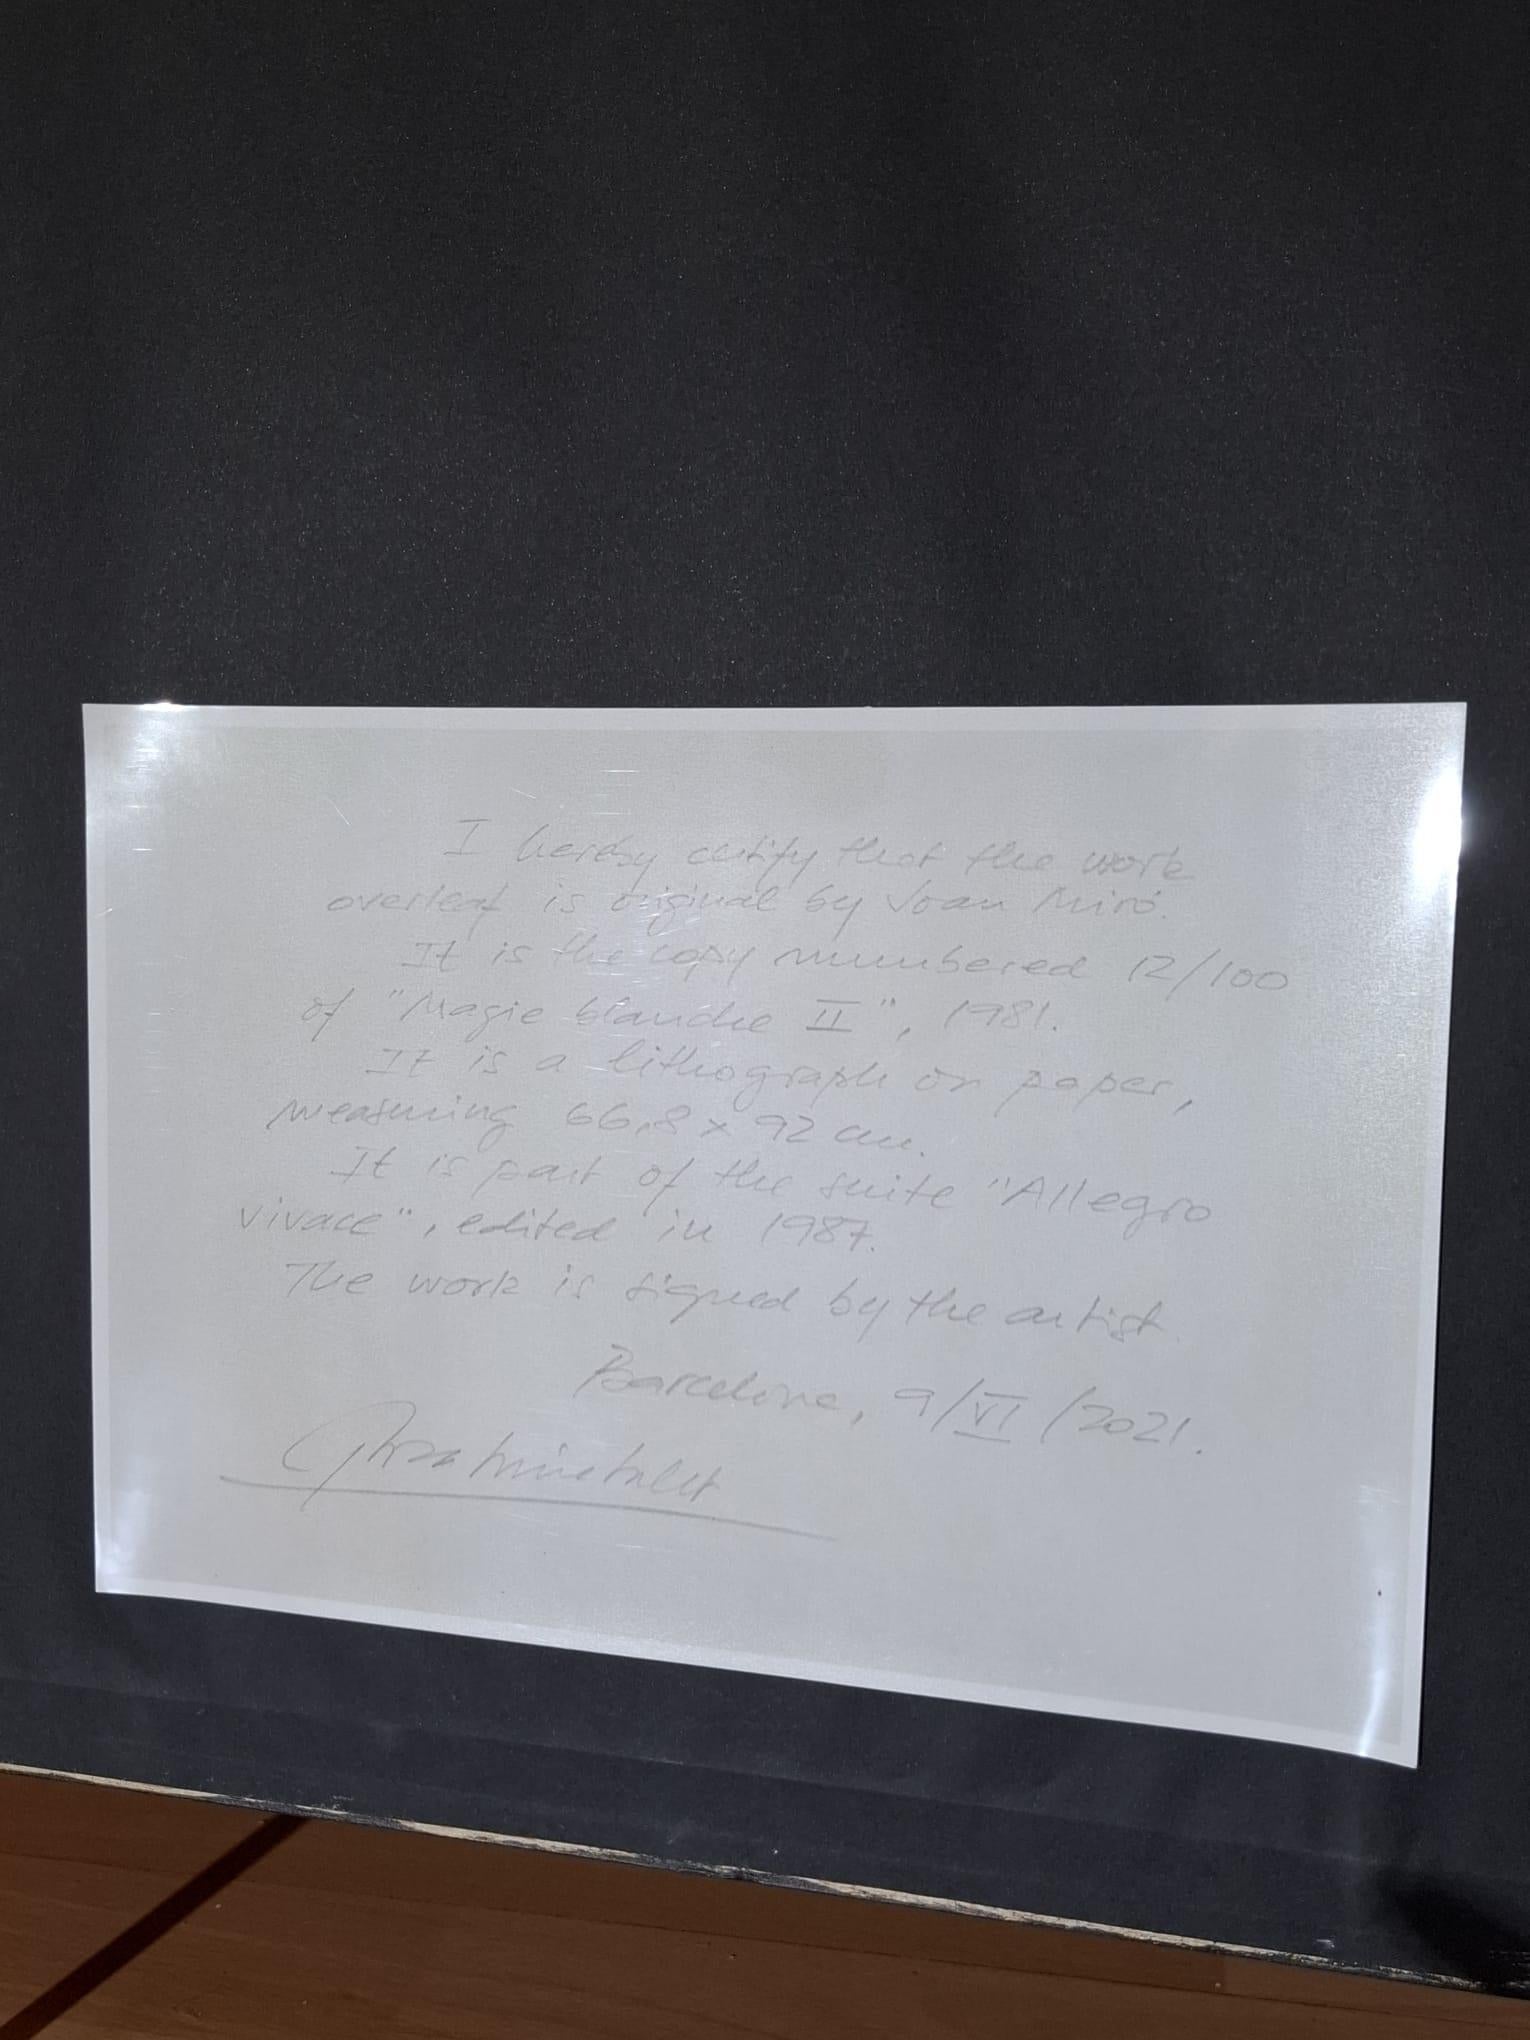 I hereby certify that the work
overleaf is original by Joan Miró.
It is the copy numbered 12/100
of "Magie blanche II", 1981.
It is a lithograph on paper,
measuring 66,8 x 92 cm.
It is part of the suite "Allegro
vivace", edited in 1987.
The work is signed by the artist.
Barcelona, 9/VI/2021.